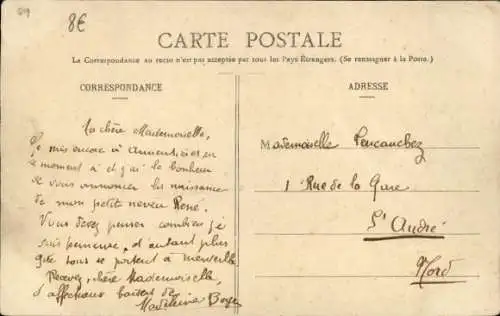 8€
CARTE POSTALE
La Correspondance au recto n'est pas acceptée par tous les Pays Étrangers. (Se renseigner à la Poste.)
CORRESPONDANCE
Ma chère Mademoiselle,
Je suis encore à Armentières en
ce moment et j'ai le bonheur
de vous annoncer la naissance
de mon petit neveu René.
Vous devez penser combien j'
suis heureuse, d'autant plus
que tous se portent à merveille
Recevez, chère Mademoiselle,
d'affectueux baisers de
Madeleine
ADRESSE
Mademoiselle
1 Rue de la Gare
St André
Nord